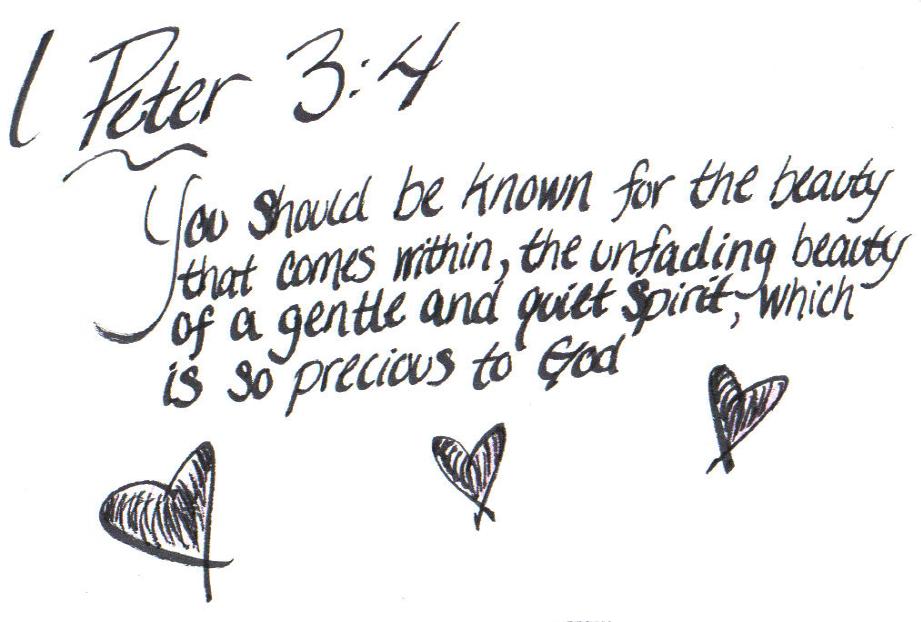 1 Peter 3:4
You should be known for the beauty
that comes within, the unfading beauty
of a gentle and quiet spirit, which
is so precious to God